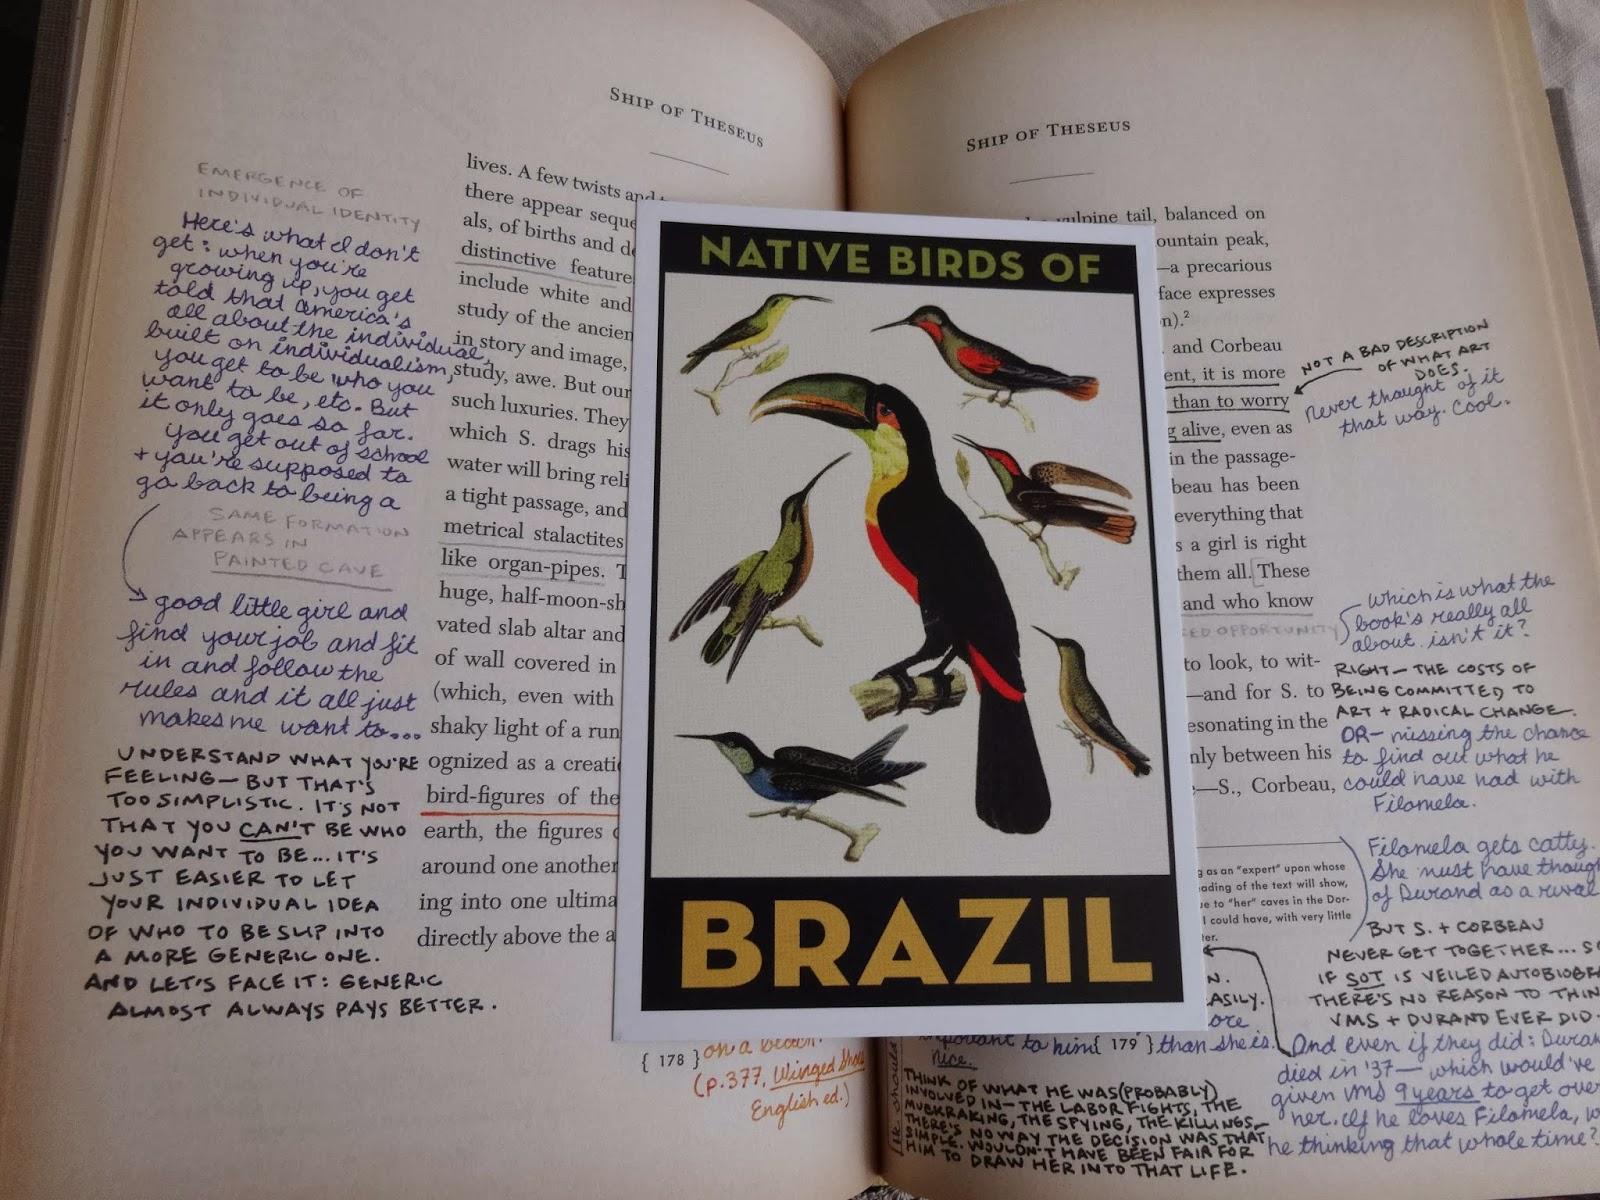 SHIP OF THESEUS
EMERGENCE OF
INDIVIDUAL IDENTITY
Here's what I don't
get: when you're
growing up, you get
told that America's
all about the individual,
built on individualism,
you get to be who you
want to be, etc. But
it only goes so far.
you get out of school
+ you're supposed to
go back to being a
SAME FORMATION
APPEARS IN
PAINTED CAVE
good little girl and
find your job and fit
in and follow the
rules and it all just
makes me want to...
UNDERSTAND WHAT YOU'RE
FEELING— BUT THAT'S
TOO SIMPLISTIC. IT'S NOT
THAT YOU CAN'T BE WHO
YOU WANT TO BE... IT'S
JUST EASIER TO LET
YOUR INDIVIDUAL IDEA
OF WHO TO BE SLIP INTO
A MORE GENERIC ONE.
AND LET'S FACE IT: GENERIC
ALMOST ALWAYS PAYS BETTER.
lives. A few twists and
there appear seque
als, of births and de
distinctive feature
include white and
study of the ancien
in story and image,
study, awe. But our
such luxuries. They
which S. drags his
water will bring reli
a tight passage, and
metrical stalactites
like organ-pipes. T
huge, half-moon-sh
vated slab altar and
of wall covered in
(which, even with
shaky light of a run
ognized as a creati
bird-figures of the
earth, the figures
around one another
ing into one ultima
directly above the a
{ 178 }
on a beach.
(p.377, Winged Shoes
English ed.)
NATIVE BIRDS OF
BRAZIL
SHIP OF THESEUS
vulpine tail, balanced on
ountain peak,
—a precarious
face expresses
n).²
. and Corbeau
ent, it is more
than to worry
g alive, even as
in the passage-
beau has been
everything that
s a girl is right
them all. These
and who know
to look, to wit-
—and for S. to
esonating in the
nly between his
—S., Corbeau,
g as an "expert" upon whose
ading of the text will show,
ue to "her" caves in the Dor-
I could have, with very little
ter.
NOT A BAD DESCRIPTION
OF WHAT ART
DOES.
never thought of it
that way. Cool.
OPPORTUNITY
which is what the
book's really all
about. isn't it?
RIGHT— THE COSTS OF
BEING COMMITTED TO
ART + RADICAL CHANGE.
OR— missing the chance
to find out what he
could have had with
Filomela.
Filomela gets catty.
She must have though
of Durand as a rival
BUT S. + CORBEAU
NEVER GET TOGETHER... S
IF SOT IS VEILED AUTOBIOGR
THERE'S NO REASON TO THIN
VMS + DURAND EVER DID.
And even if they did: Duran
died in '37— which would've
given VMS 9 years to get over
her. If he loves Filomela, w
he thinking that whole time?
N.
EASILY.
ore
important to him
than she is.
{ 179 }
nice.
THINK OF WHAT HE WAS (PROBABLY)
INVOLVED IN— THE LABOR FIGHTS, THE
MUCKRAKING, THE SPYING, THE KILLINGS—
THERE'S NO WAY THE DECISION WAS THAT
SIMPLE. WOULDN'T HAVE BEEN FAIR FOR
HIM TO DRAW HER INTO THAT LIFE.